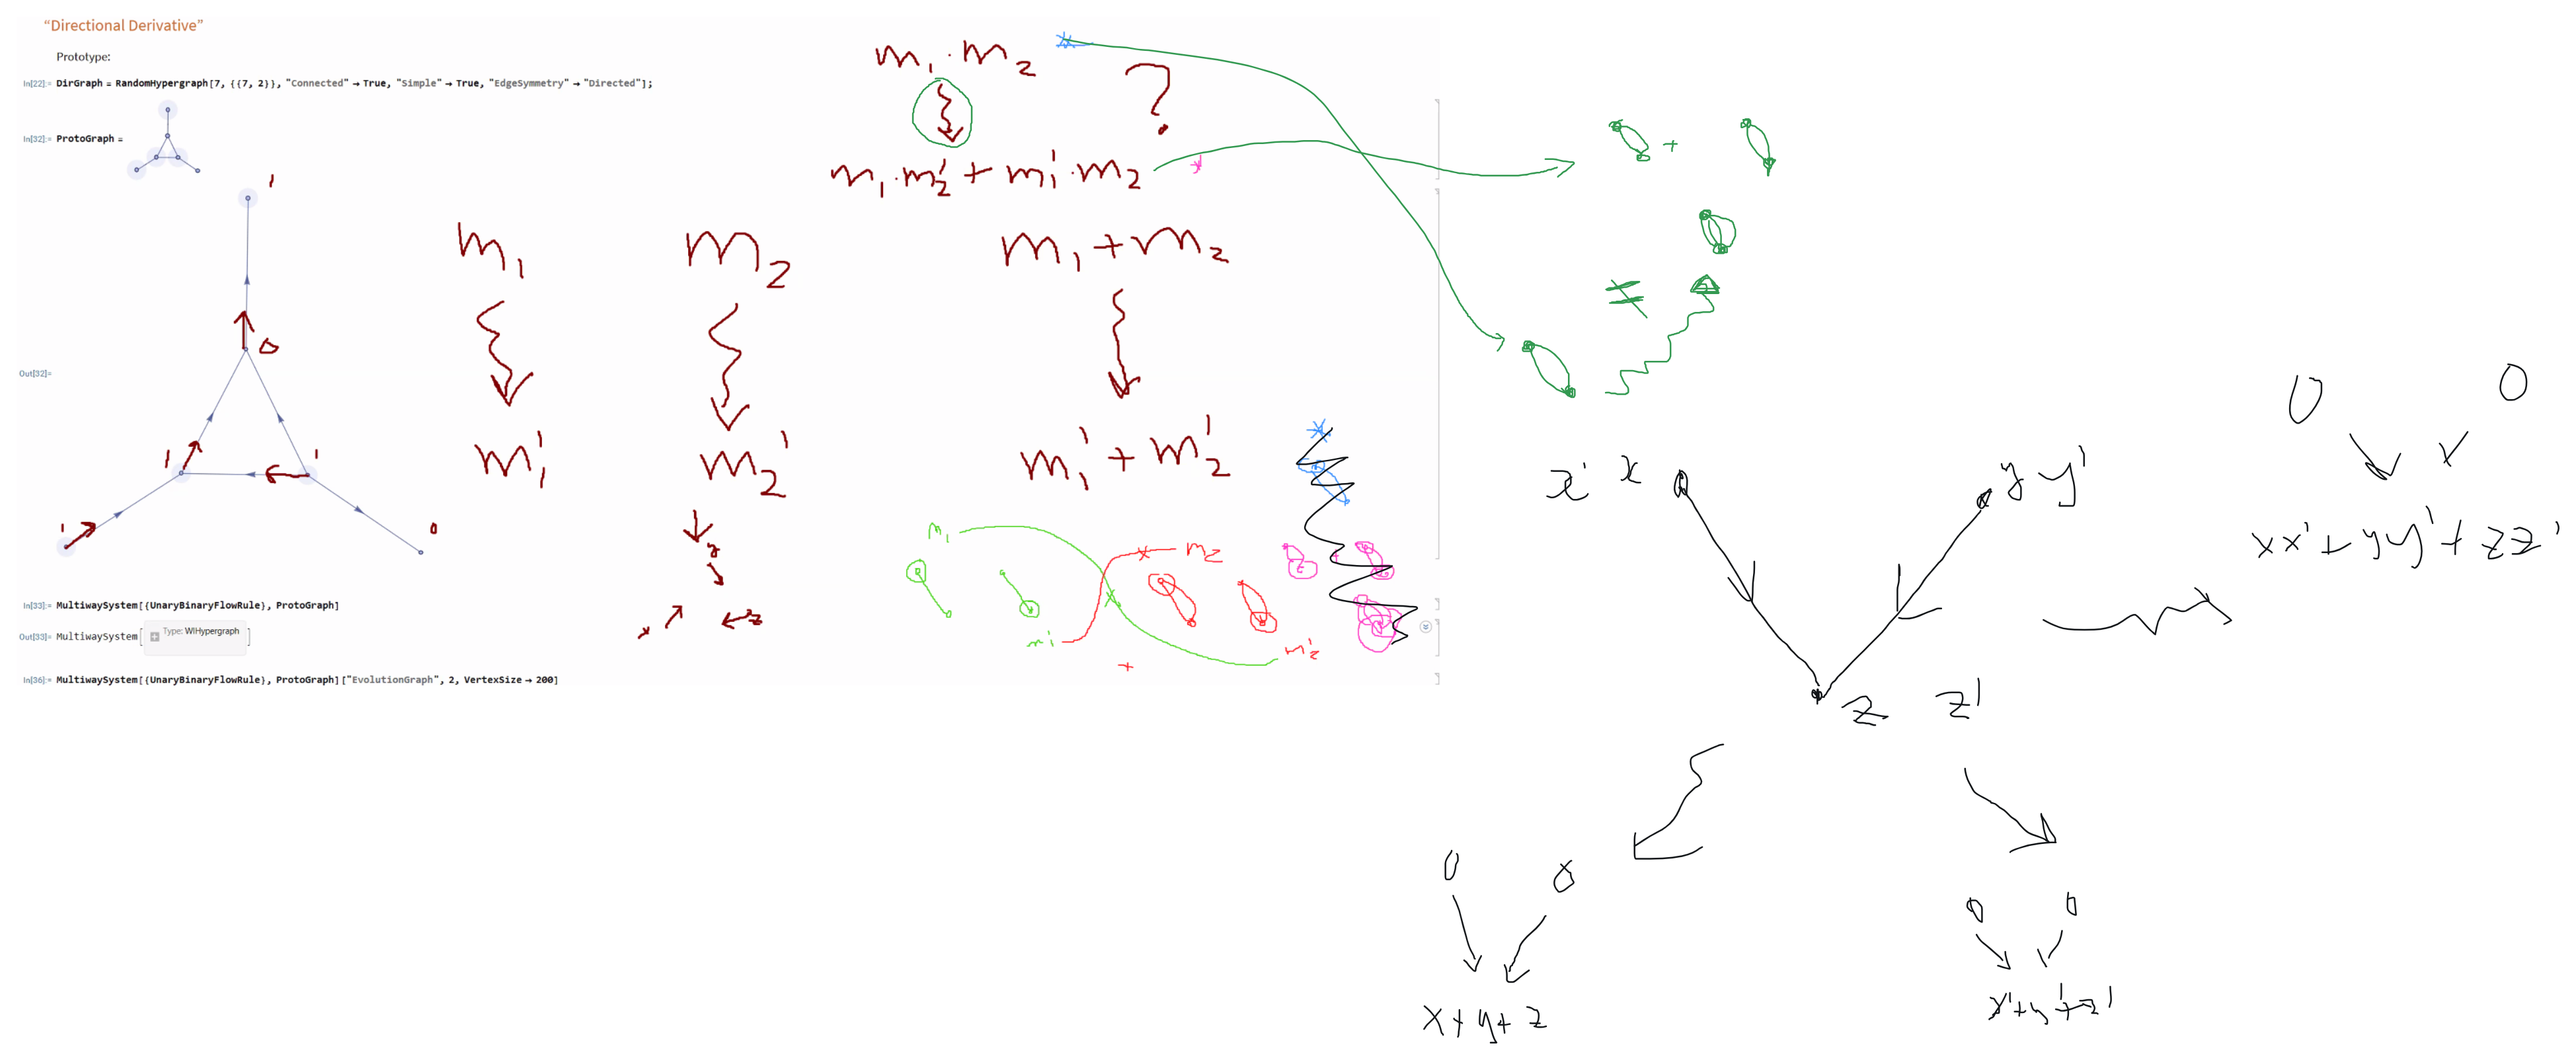 “Directional Derivative”
Prototype:
In[22]:= DirGraph = RandomHypergraph[7, {{7, 2}}, "Connected" → True, "Simple" → True, "EdgeSymmetry" → "Directed"];
In[32]:= ProtoGraph =
Out[32]=
1
0
1
1
1
0
In[33]:= MultiwaySystem[{UnaryBinaryFlowRule}, ProtoGraph]
Out[33]= MultiwaySystem[ Type: WIHypergraph ]
In[36]:= MultiwaySystem[{UnaryBinaryFlowRule}, ProtoGraph]["EvolutionGraph", 2, VertexSize → 200]
m₁ · m₂
?
m₁ · m₂' + m₁' · m₂
m₁
m₂
m₁ + m₂
m₁'
m₂'
m₁' + m₂'
y
x
z
m₁
m₂
m₁'
m₂'
+
+
≠
x' x
y y'
z z'
0 0
xx' + yy' + zz'
0 0
x + y + z
0 0
x' + y' + z'